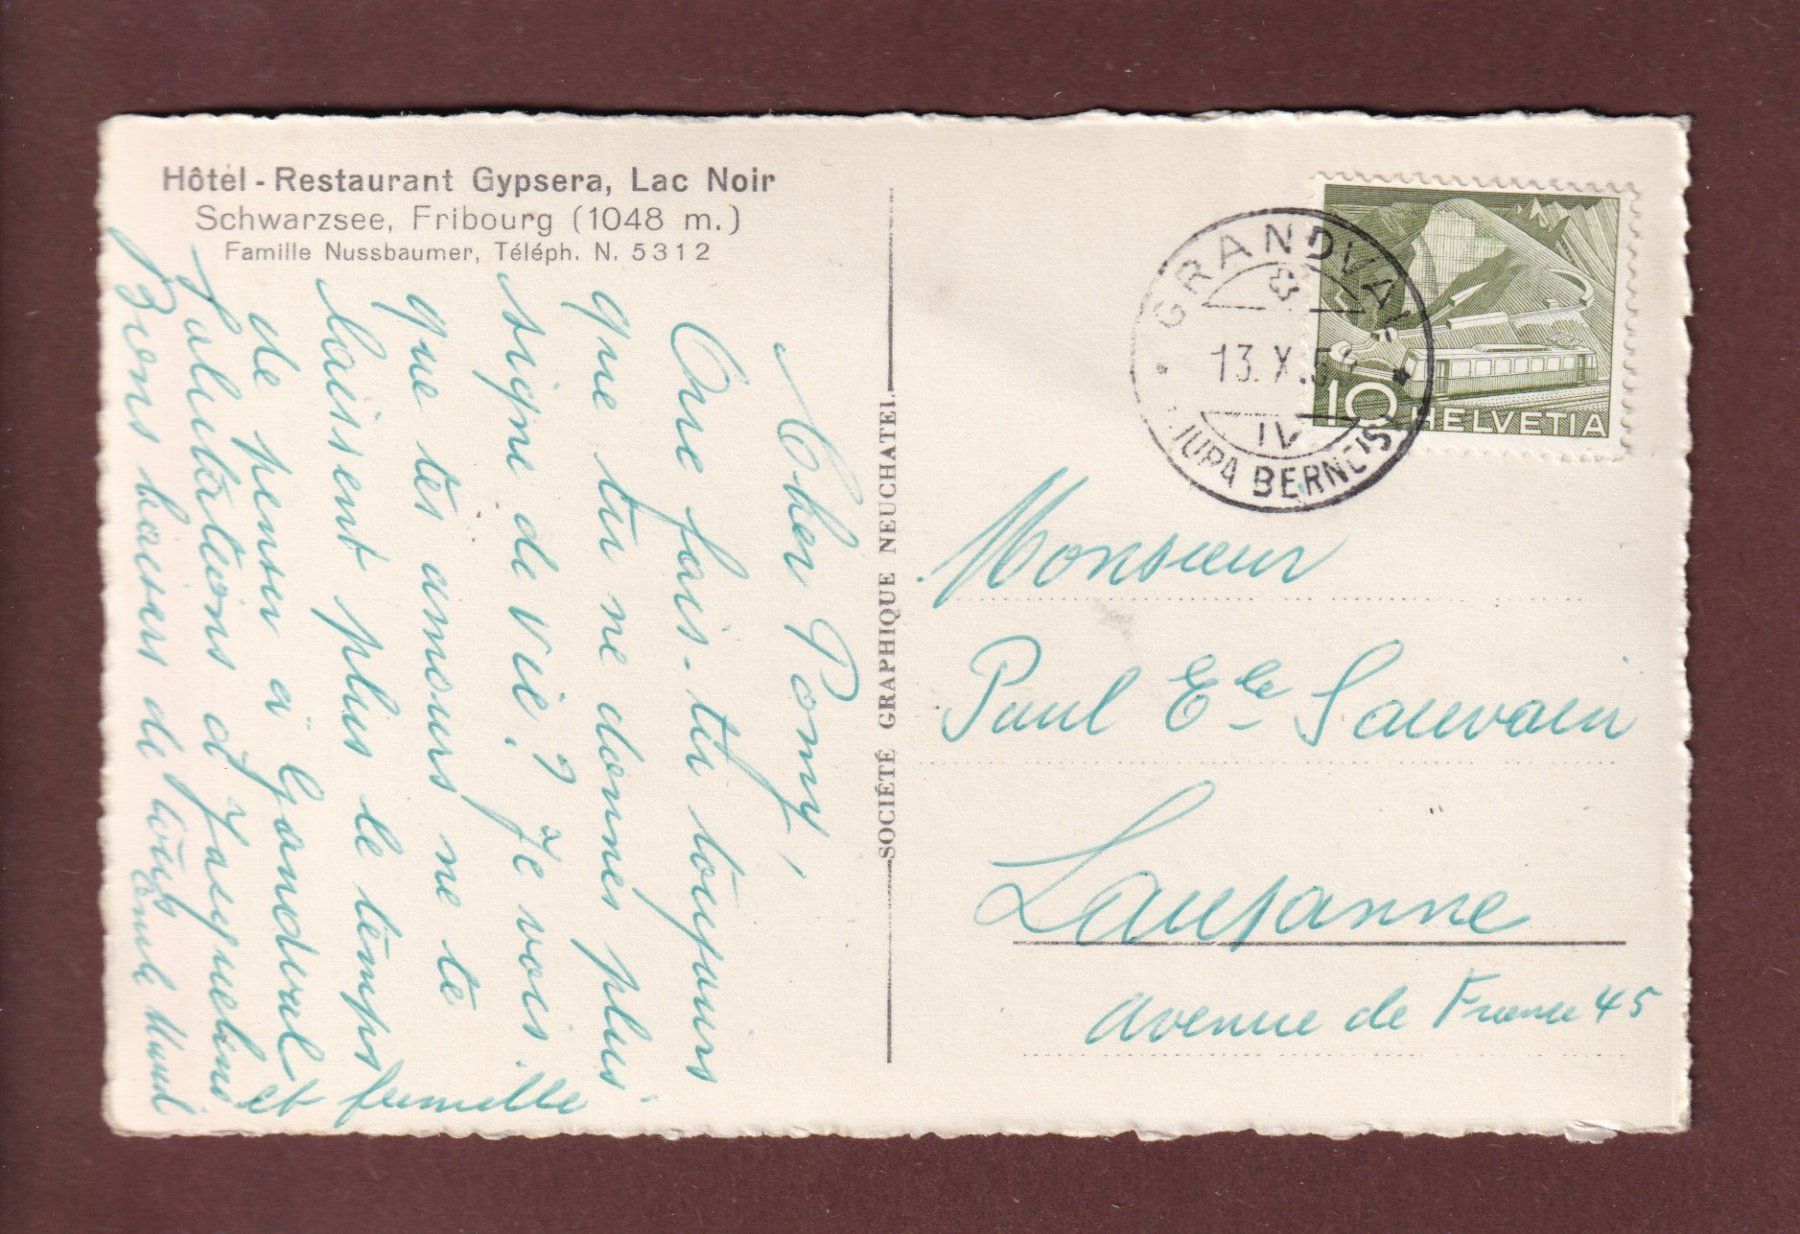 Hôtel-Restaurant Gypsera, Lac Noir
Schwarzsee, Fribourg (1048 m.)
Famille Nussbaumer, Téléph. N. 5312
Cher Pomy,
Que fais-tu toujours
que tu ne donnes plus
signe de vie? Je vois
que tes amours ne te
laissent plus le temps
de penser à Grandval
Salutations d'Jasquelini
et famille
Bons baisers de tous
SOCIÉTÉ GRAPHIQUE NEUCHATEL
GRANDVAL
13.X.5
IV
(JURA BERNOIS)
10 HELVETIA
Monsieur
Paul Ele Sauvain
Lausanne
Avenue de France 45